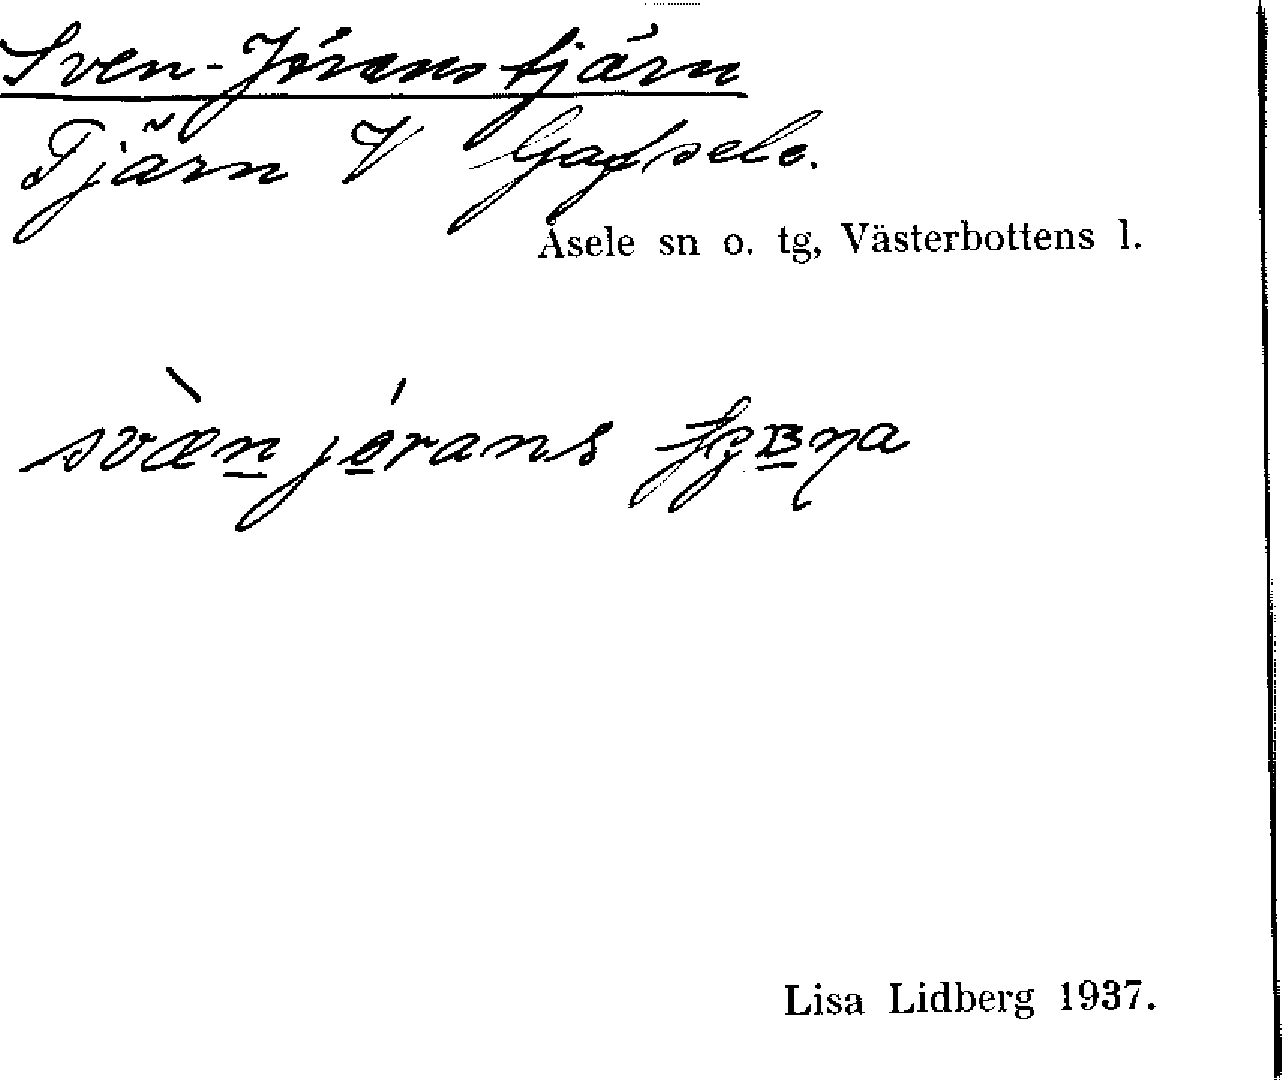 Sven-Jöranstjärn
Tjärn V Gafsele.
Åsele sn o. tg, Västerbottens l.
svæn jörans
Lisa Lidberg 1937.